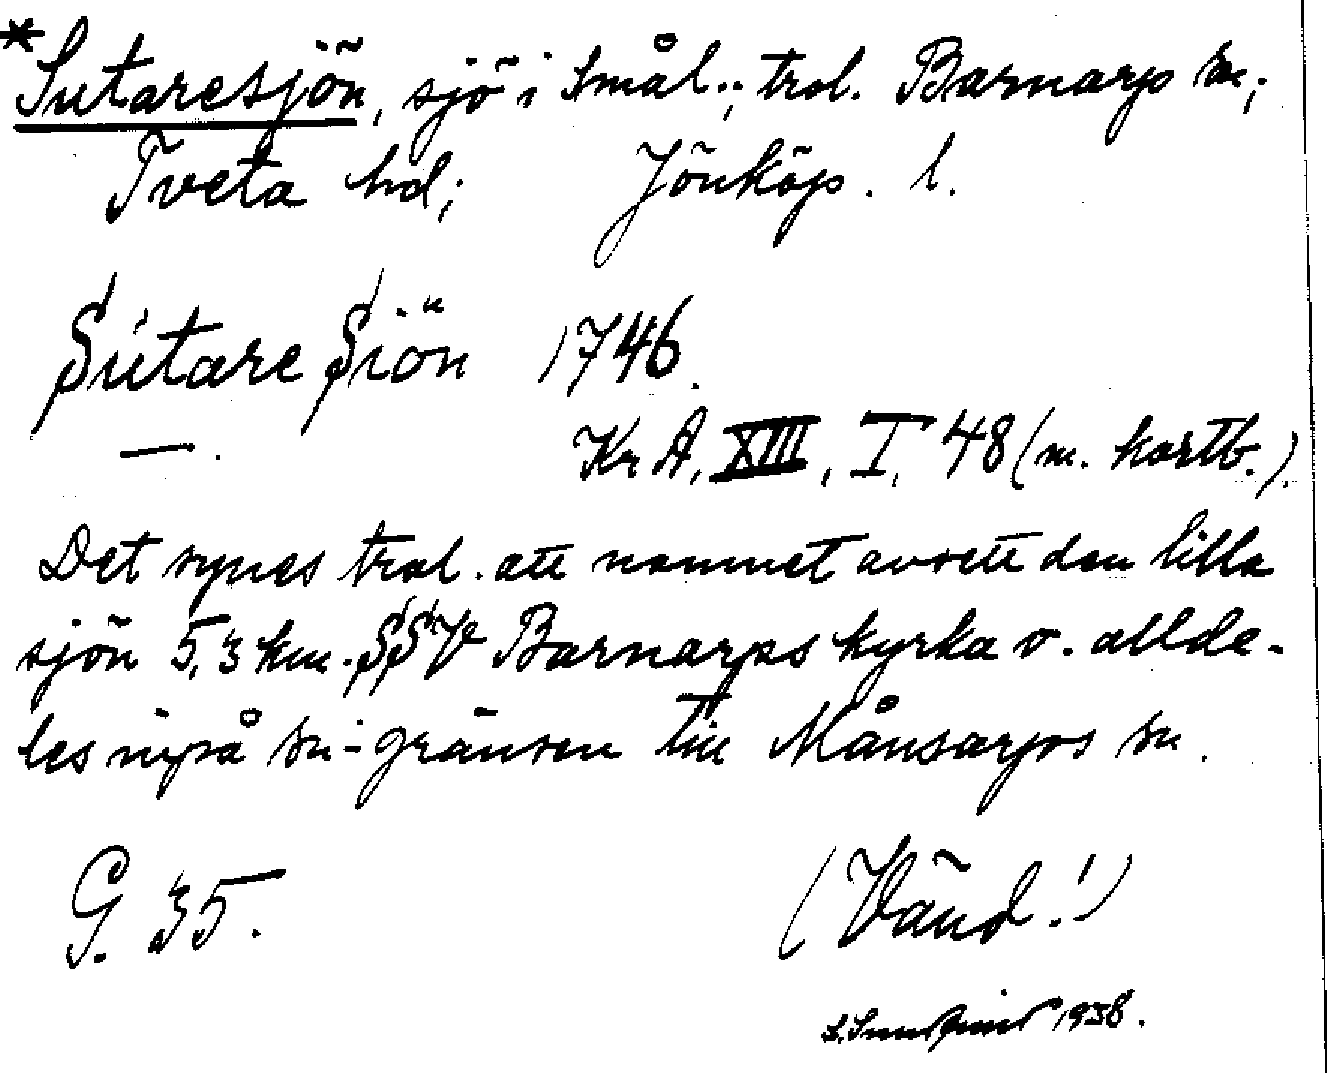 *Sutaresjön, sjö i Smål.; trol. Barnarp sn;
Tveta hd; Jönköp. l.
Sutare Siön 1746.
— . Kr A, XIII, I, 48 (m. kartb.).
Det synes trol. att namnet avsett den lilla
sjön 5,3 km. SSV Barnarps kyrka o. allde-
les inpå sn-gränsen till Månsarps sn.
G. 35. (Vänd!)
1938.